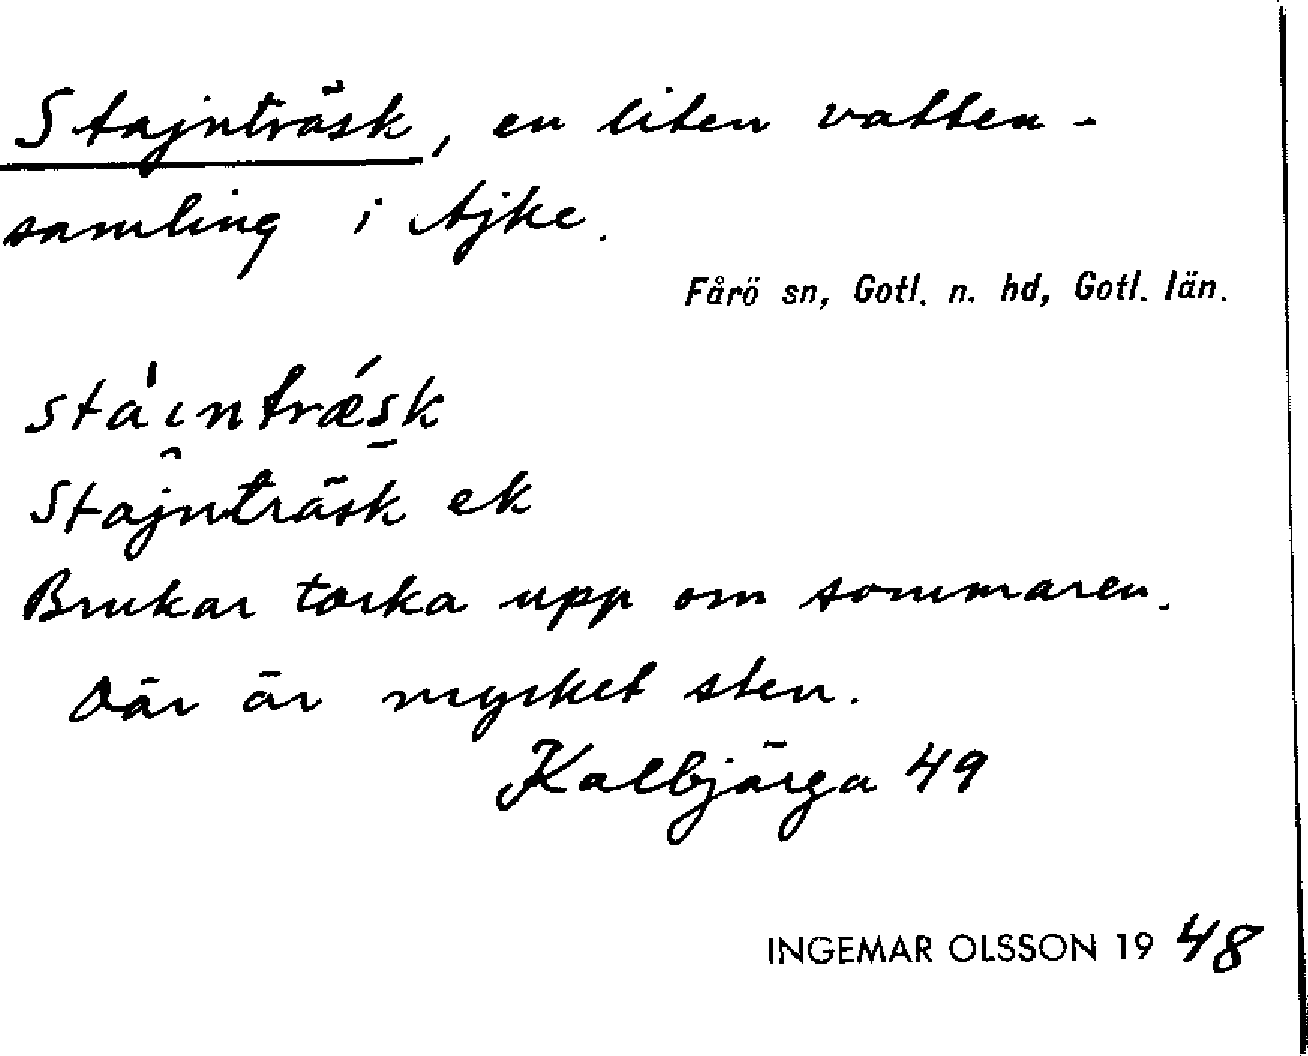 Stajnträsk, en liten vatten-
samling i Ajke.
Fårö sn, Gotl. n. hd, Gotl. län.
stáɩ̯ntrǽs̱k
Stajnträsk ek
Brukar torka upp om sommaren.
Där är mycket sten.
Kalbjärga 49
INGEMAR OLSSON 1948